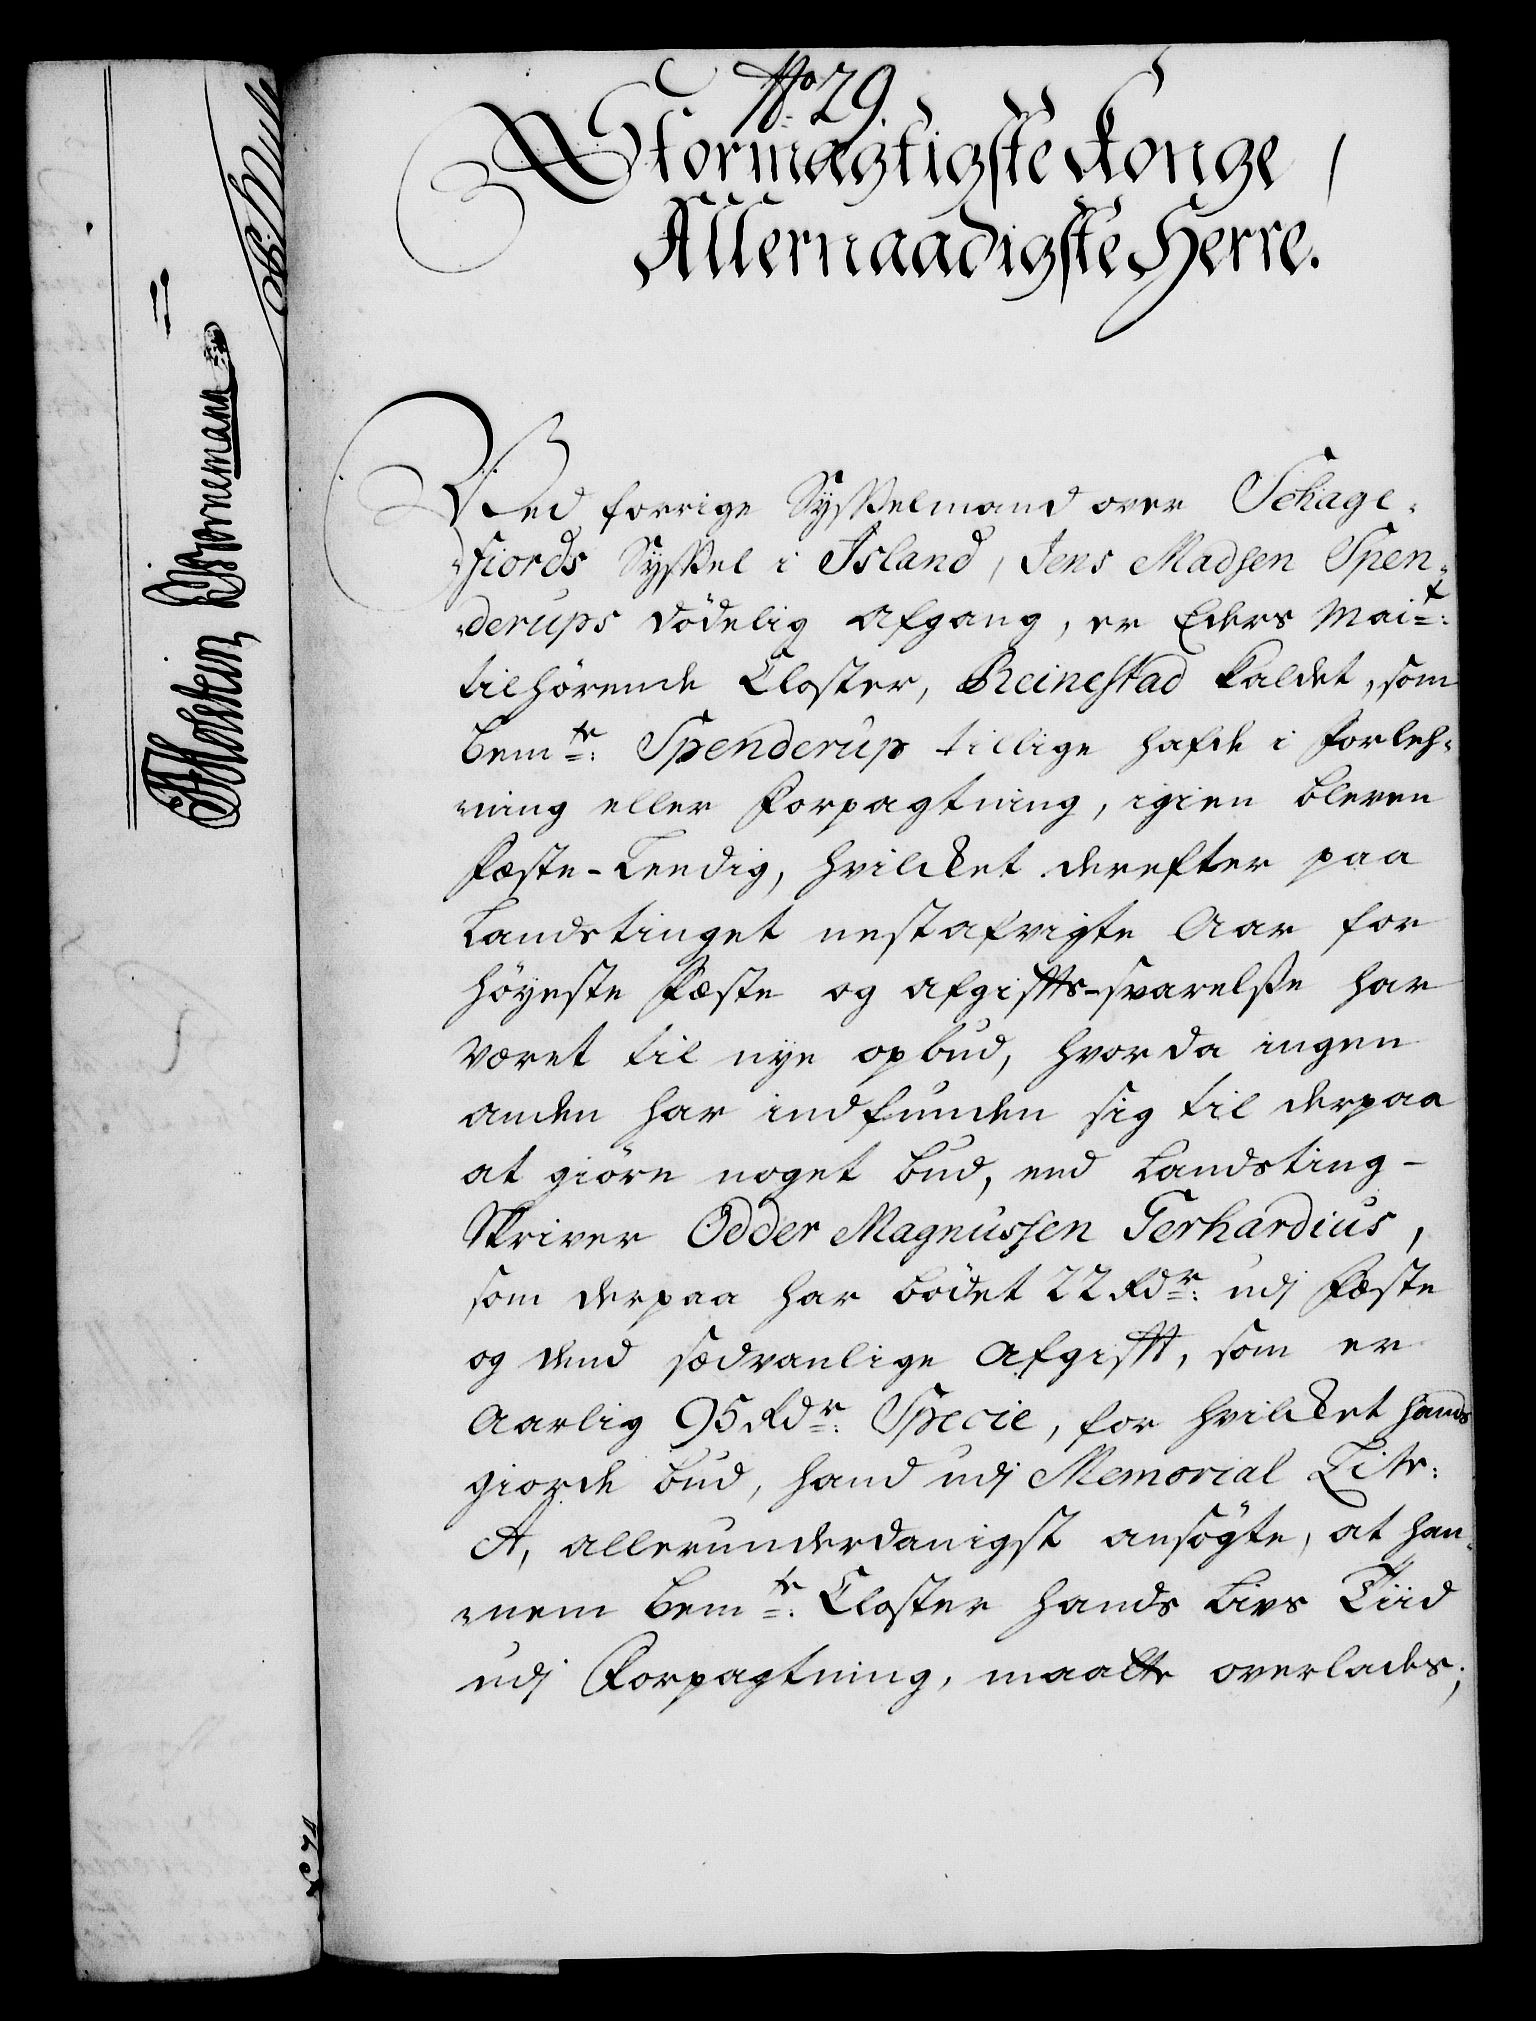 No. 29.
Stormægtigste Konge
Allernaadigste Herre.
Ved forrige Sysselmand over Schage-
fiords Syssel i Island, Jens Madsen Spen-
derups dödelig afgang, er Eders Mai:t
tilhørende Closter, Reinestad kaldet, som
bem:te Spenderup tillige hafde i forleh-
ning eller forpagtning, igien bleven
fæste-Leedig, hvilcket derefter paa
Landstinget nestafvigte Aar for
höyeste fæste og afgiffts-svarelse har
været til nye opbud, hvor da ingen
anden har indfunden sig til derpaa
at giöre noget bud, end Landsting-
Skriver Odder Magnussen Gerhardius,
som derpaa har bödet 22 Rdr: udj fæste
og dend sædvanlige Afgifft, som er
Aarlig 95 Rdr: Specie, for hvilcket hands
giorde bud, hand udj Memorial Litr:
A, allerunderdanigst ansögte, at han-
nem bem:te Closter hands Livs Tiid
udj Forpagtning, maatte overlades;
Holstein
Bornemann